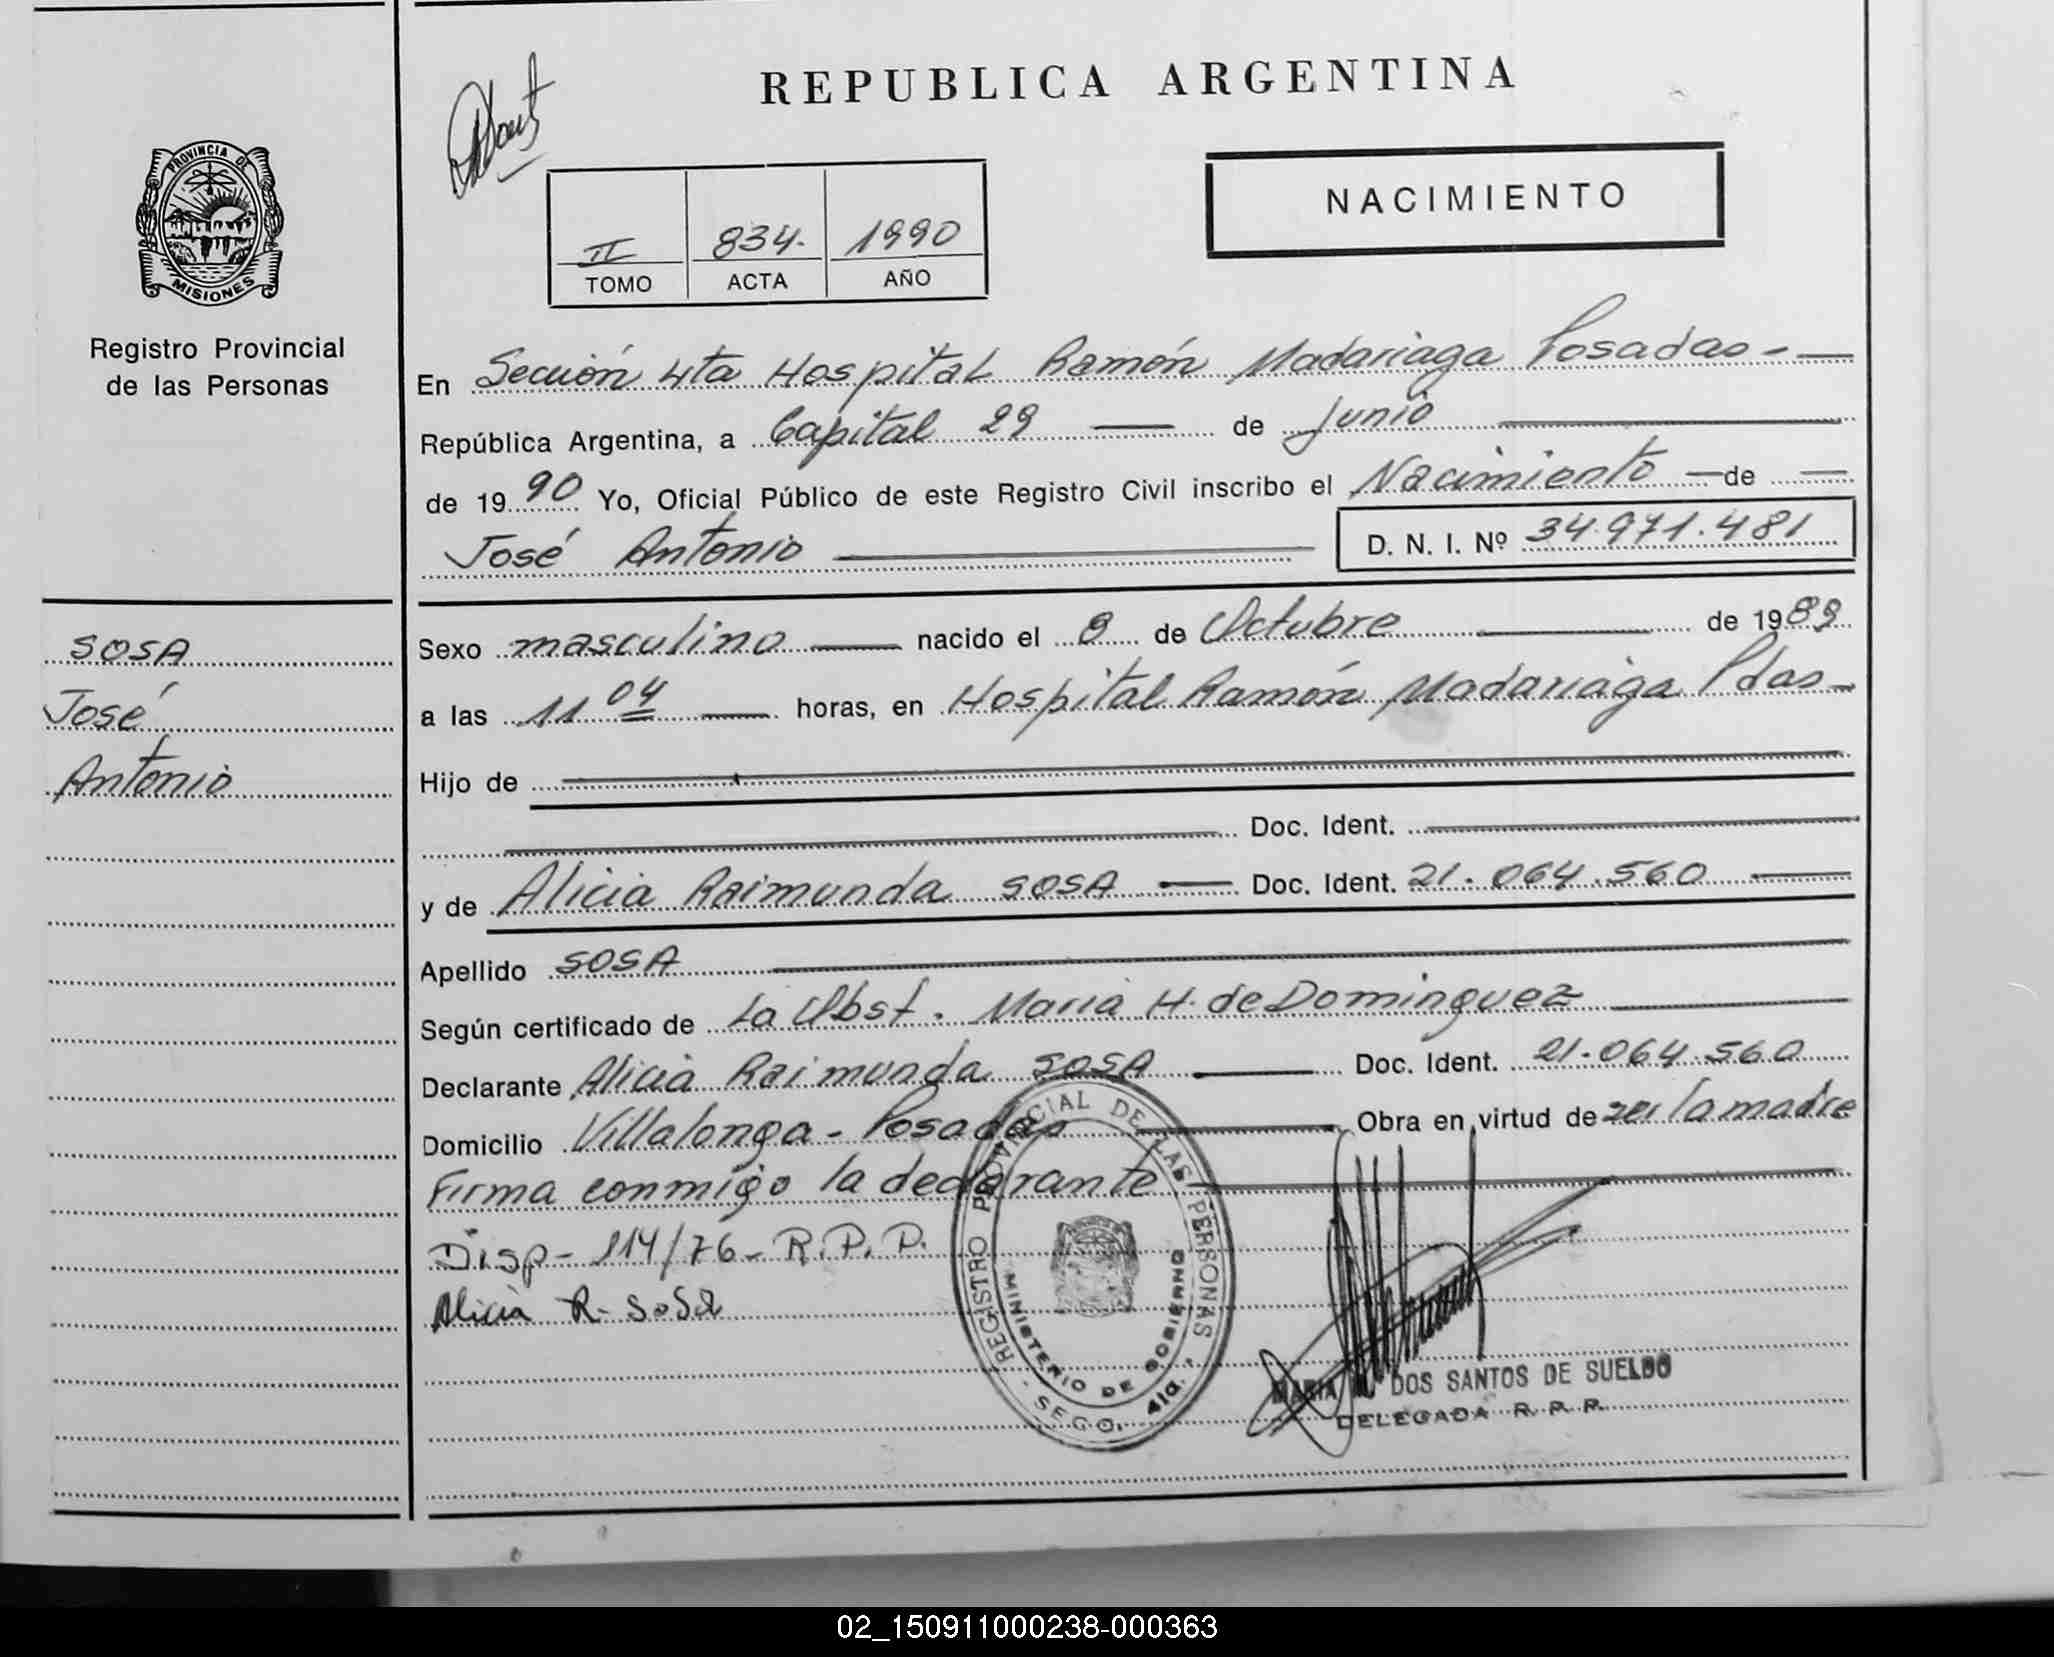 REPUBLICA ARGENTINA
NACIMIENTO
II 834. 1990
TOMO ACTA AÑO
PROVINCIA DE
MISIONES
Registro Provincial
de las Personas
SOSA
José
Antonio
En Sección 4ta Hospital Ramón Madariaga Posadas -
República Argentina, a Capital 29 de Junio
de 19 90 Yo, Oficial Público de este Registro Civil inscribo el Nacimiento de
José Antonio D. N. I. Nº 34.971.481
Sexo masculino nacido el 8 de Octubre de 1989
a las 11 04 horas, en Hospital Ramón Madariaga Pdas -
Hijo de
Doc. Ident.
y de Alicia Raimunda SOSA Doc. Ident. 21.064.560
Apellido SOSA
Según certificado de La Obst. María H. de Dominguez
Declarante Alicia Raimunda SOSA Doc. Ident. 21.064.560
Domicilio Villalonga - Posadas Obra en virtud de ser la madre
Firma conmigo la declarante
Disp - 114/76 - R.P.P.
Alicia R. Sosa
REGISTRO PROVINCIAL DE LAS PERSONAS
MINISTERIO DE GOBIERNO
- SECO. 4ta. -
MARIA DOS SANTOS DE SUELDO
DELEGADA R. P. P.
02_150911000238-000363